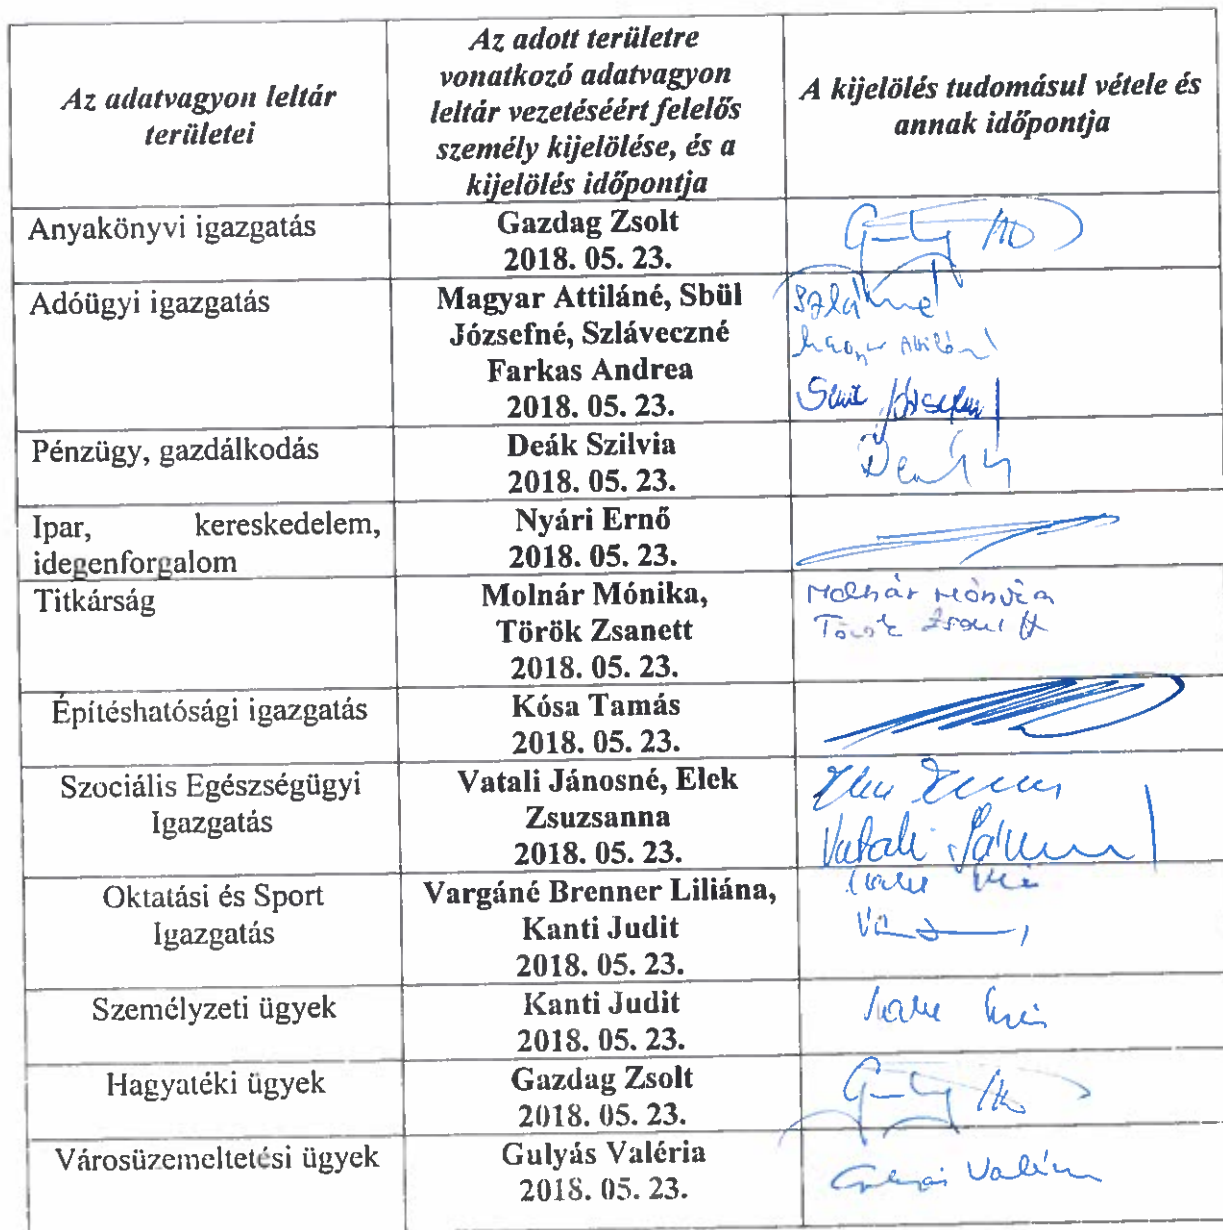 Az adatvagyon leltár
területei
Az adott területre
vonatkozó adatvagyon
leltár vezetéséért felelős
személy kijelölése, és a
kijelölés időpontja
A kijelölés tudomásul vétele és
annak időpontja
Anyakönyvi igazgatás
Gazdag Zsolt
2018. 05. 23.
Adóügyi igazgatás
Magyar Attiláné, Sbül
Józsefné, Szláveczné
Farkas Andrea
2018. 05. 23.
Magyar Attiláné
Pénzügy, gazdálkodás
Deák Szilvia
2018. 05. 23.
Ipar, kereskedelem,
idegenforgalom
Nyári Ernő
2018. 05. 23.
Titkárság
Molnár Mónika,
Török Zsanett
2018. 05. 23.
Molnár Mónika
Török Zsanett
Építéshatósági igazgatás
Kósa Tamás
2018. 05. 23.
Szociális Egészségügyi
Igazgatás
Vatali Jánosné, Elek
Zsuzsanna
2018. 05. 23.
Vatali Jánosné
Oktatási és Sport
Igazgatás
Vargáné Brenner Liliána,
Kanti Judit
2018. 05. 23.
Személyzeti ügyek
Kanti Judit
2018. 05. 23.
Hagyatéki ügyek
Gazdag Zsolt
2018. 05. 23.
Városüzemeltetési ügyek
Gulyás Valéria
2018. 05. 23.
Gulyás Valéria